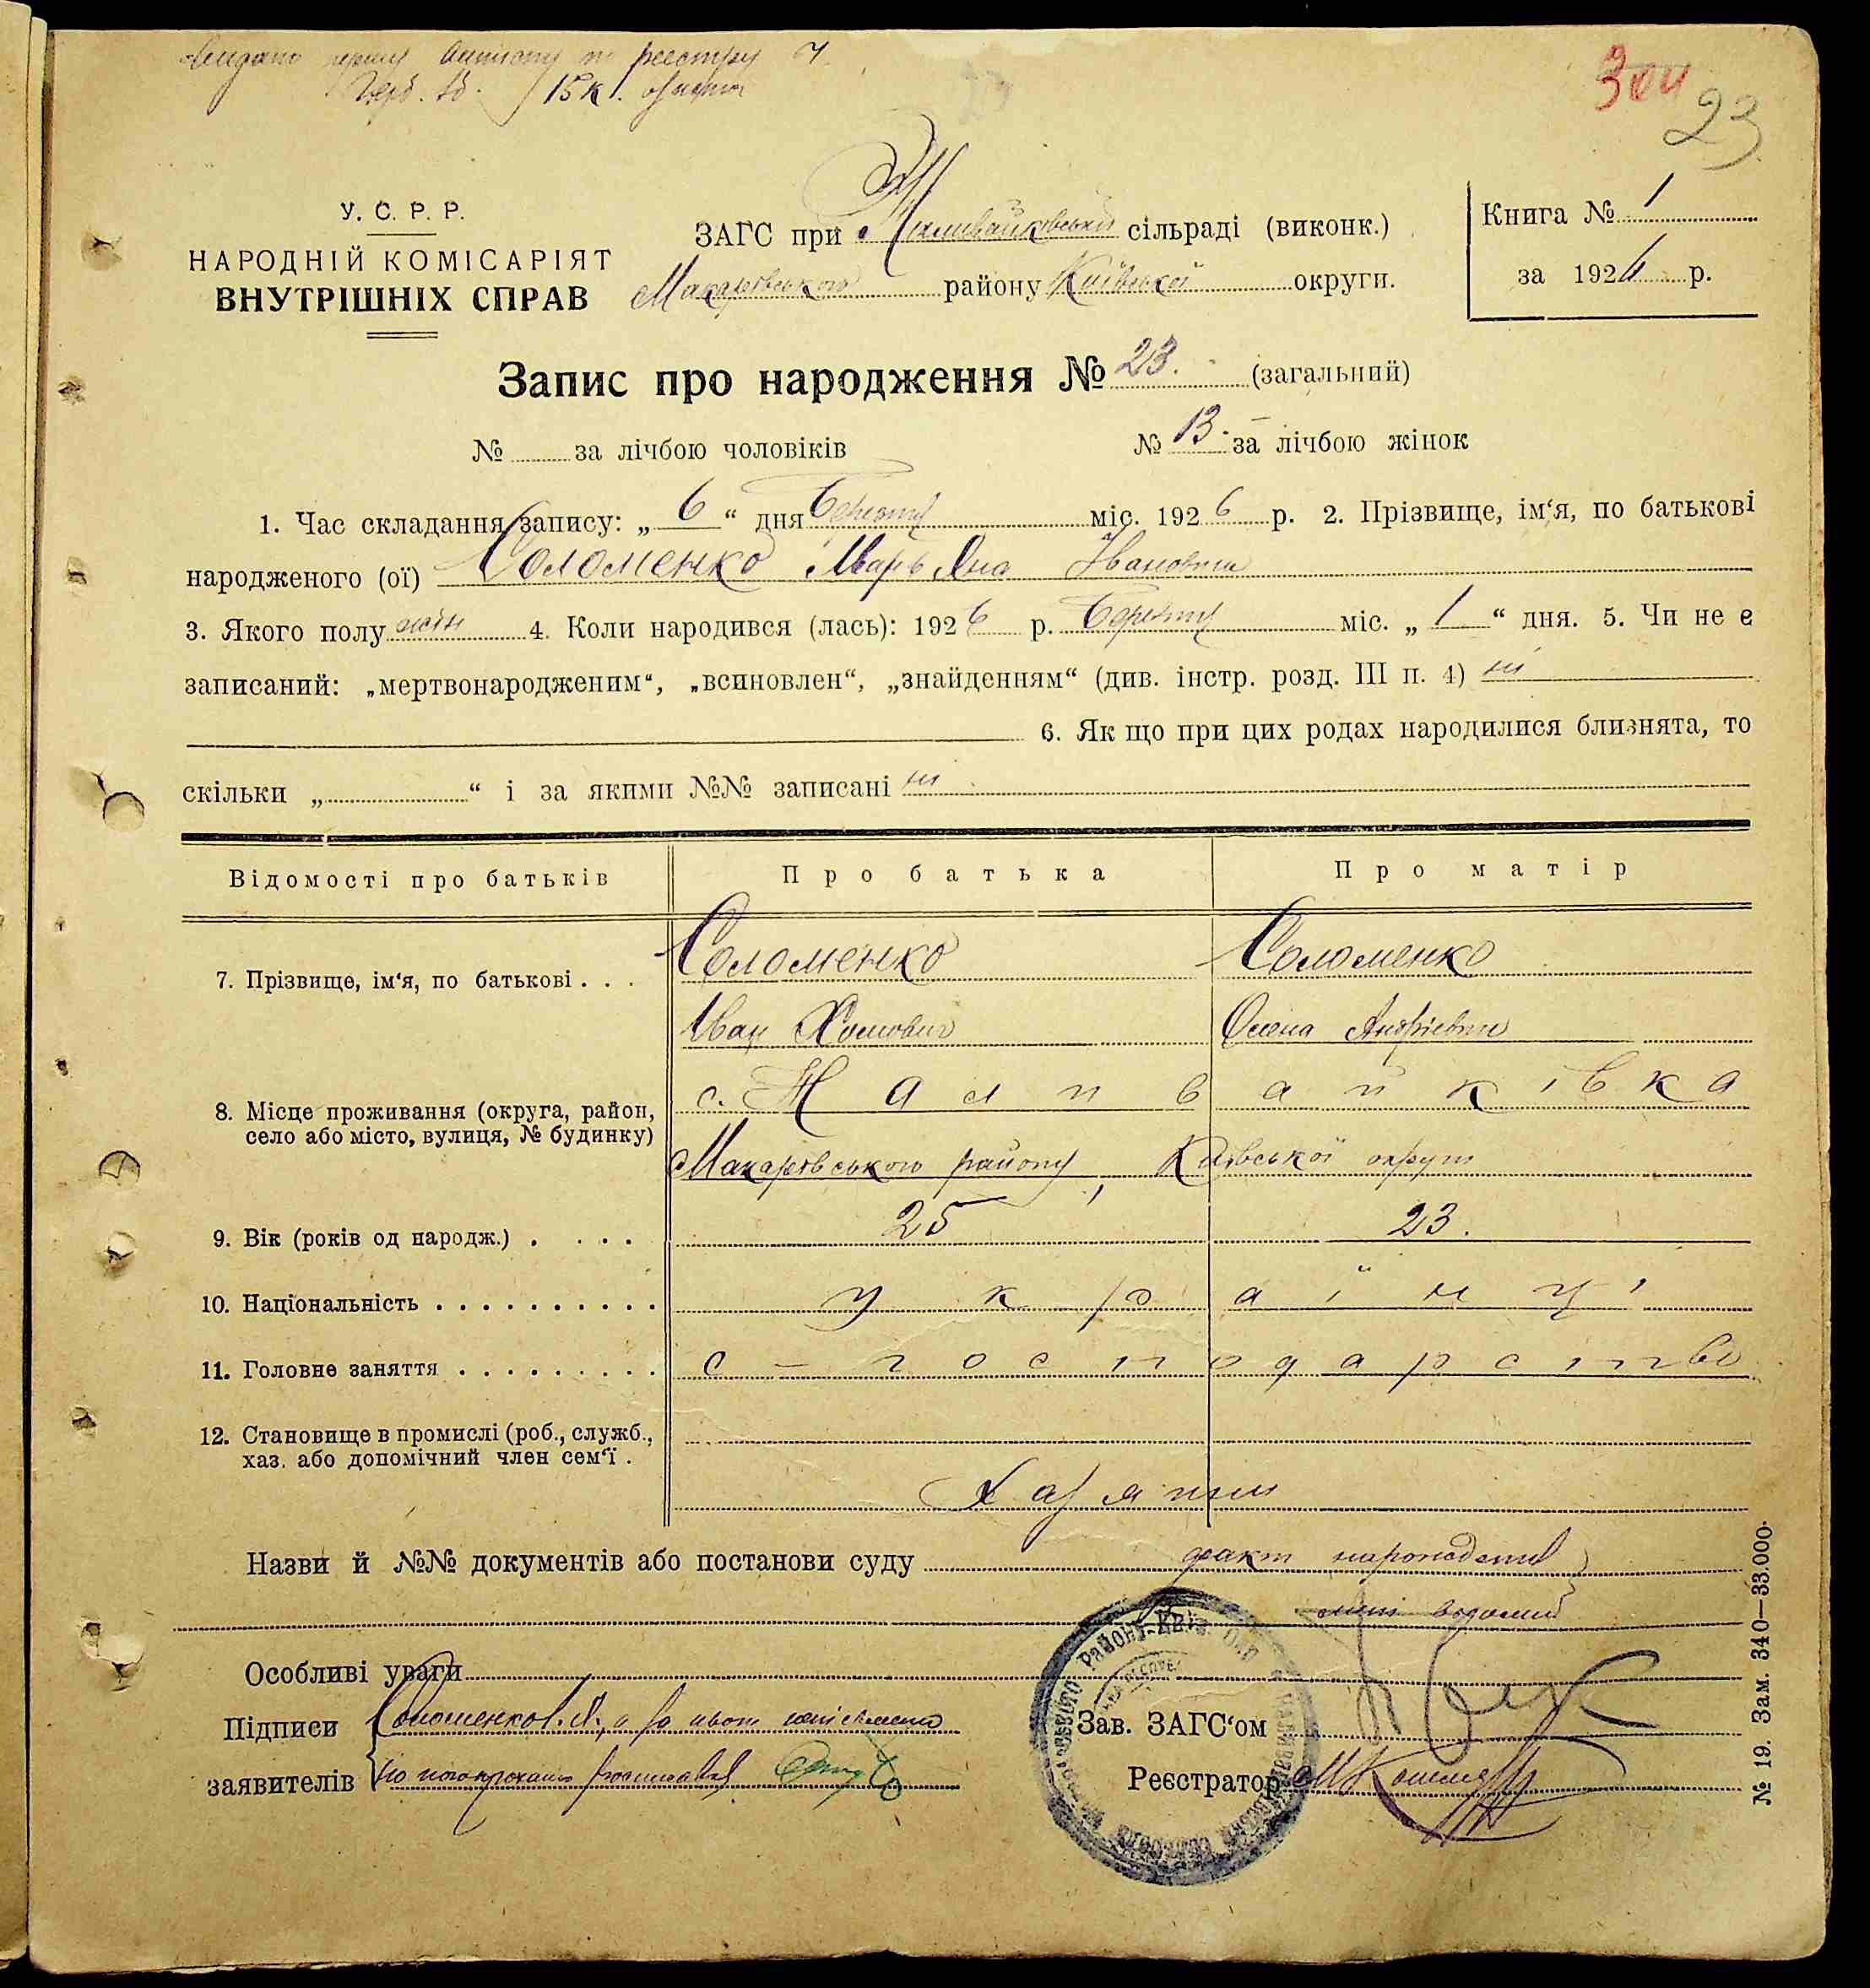 Видано першу виписку по реєстру Ч
Герб. зб. 15 к.
23
У. С. Р. Р.
НАРОДНІЙ КОМІСАРІЯТ
ВНУТРІШНІХ СПРАВ
ЗАГС при Наливайківській сільраді (виконк.)
Макарівського району Київської округи.
Книга № 1
за 1926 р.
Запис про народження № 23. (загальний)
№ за лічбою чоловіків
№ 13. за лічбою жінок
1. Час складання запису: „ 6 “ дня Березня міс. 1926 р. 2. Прізвище, ім‘я, по батькові
народженого (ої) Соломенко Марьяна Івановна
3. Якого полу жін 4. Коли народився (лась): 1926 р. Березня міс. „ 1 “ дня. 5. Чи не є
записаний: „мертвонародженим“, „всиновлен“, „знайденням“ (див. інстр. розд. III п. 4) ні
6. Як що при цих родах народилися близнята, то
скільки „ “ і за якими №№ записані ні
Відомості про батьків
Про батька
Про матір
7. Прізвище, ім‘я, по батькові . . .
Соломенко
Іван Хомович
Соломенко
Олена Андрієвна
8. Місце проживання (округа, район,
село або місто, вулиця, № будинку)
с. Наливайківка
Макарівського району, Київської округи
9. Вік (років од народж.) . . . .
25
23.
10. Національність . . . . . . . . . .
українці
11. Головне заняття . . . . . . . . .
с-господарство
12. Становище в промислі (роб., служб.,
хаз. або допомічний член сем‘ї .
Хазяїни
Назви й №№ документів або постанови суду факт народження
мені відомий
Особливі уваги
Підписи
заявителів
Соломенко І. Х., а
розписався
Зав. ЗАГС‘ом
Реєстратор
№ 19. Зам. 340—33.000.